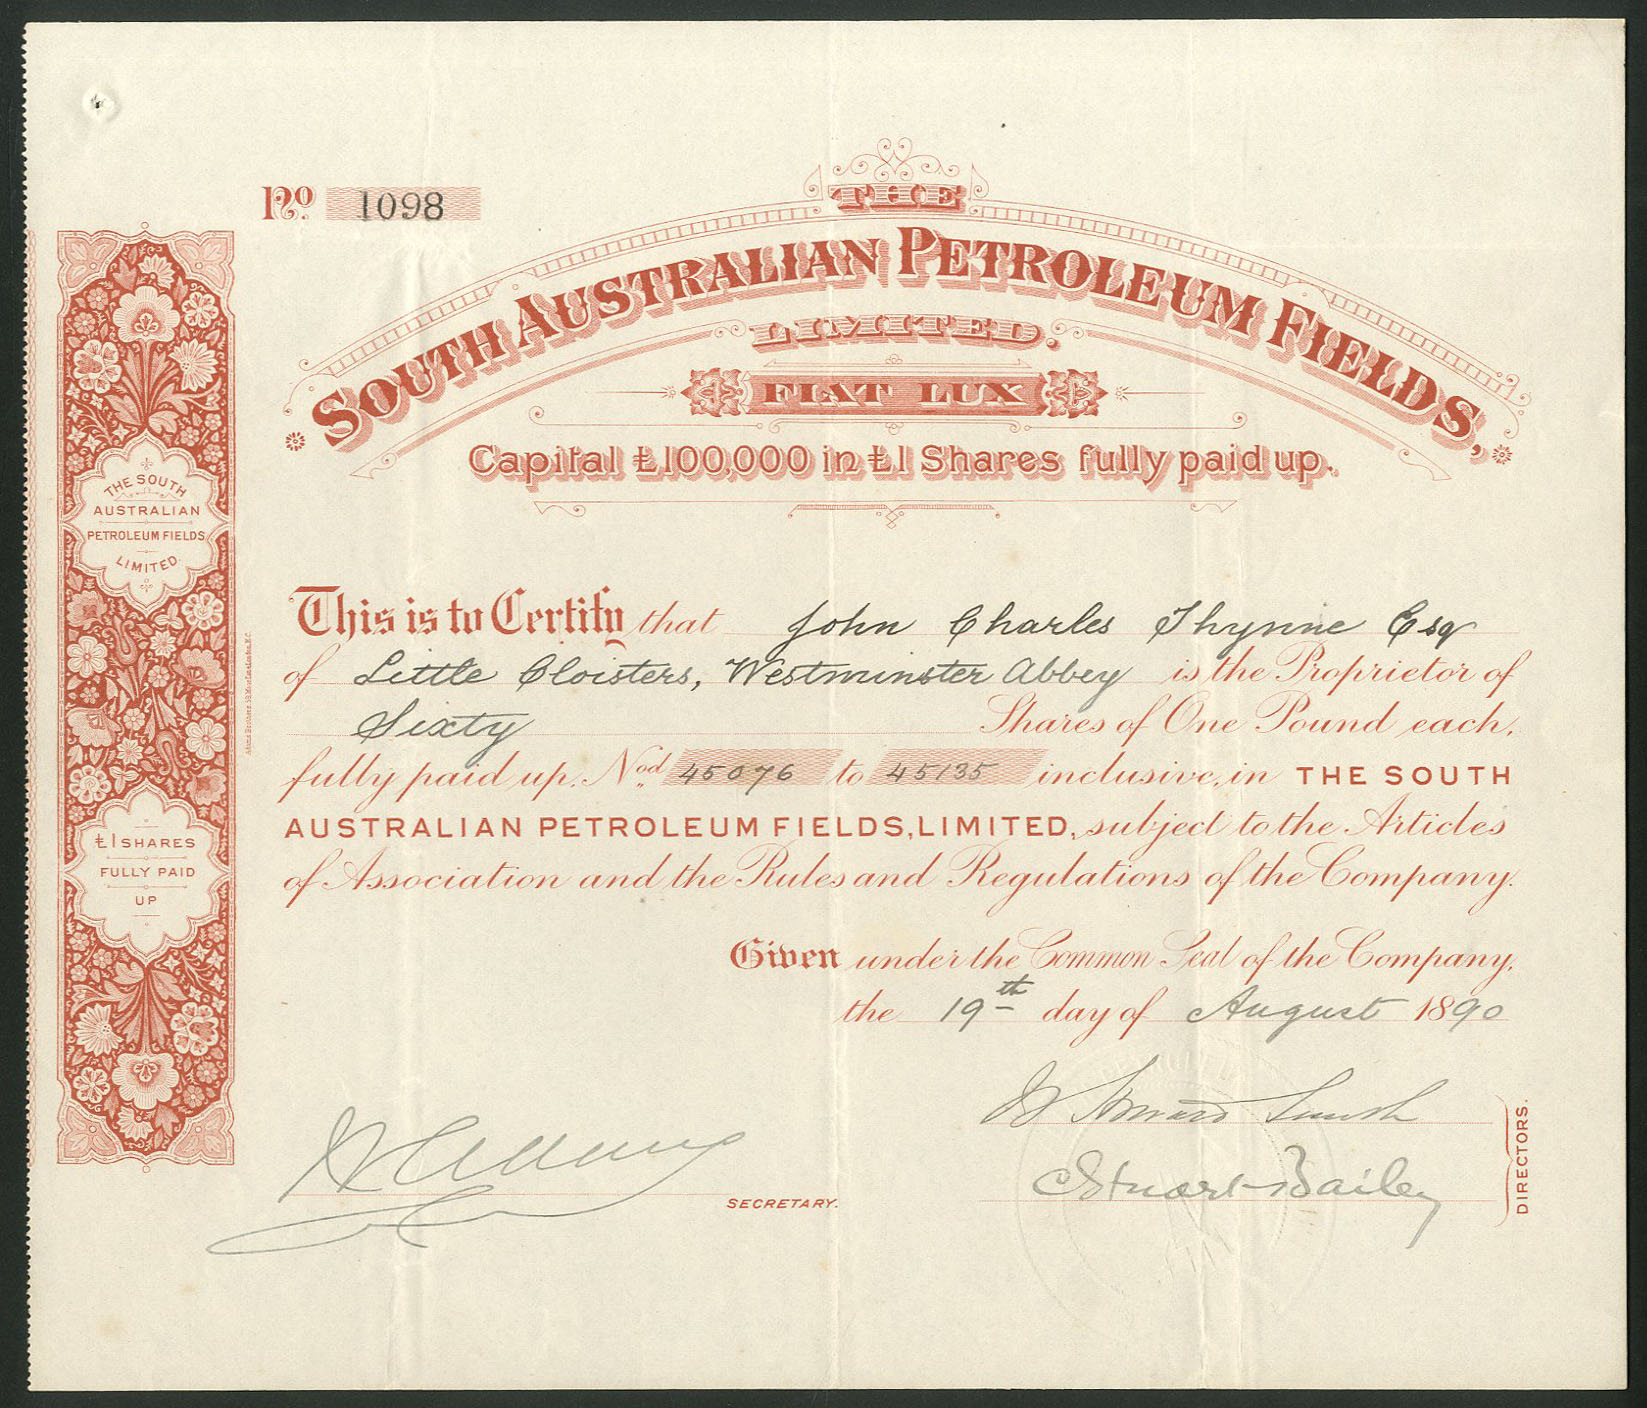 No. 1098
THE
SOUTH AUSTRALIAN PETROLEUM FIELDS,
LIMITED.
FIAT LUX
Capital £100,000 in £1 Shares fully paid up.
THE SOUTH
AUSTRALIAN
PETROLEUM FIELDS
LIMITED
£1 SHARES
FULLY PAID
UP
This is to Certify that John Charles Thynne Esq
of Little Cloisters, Westminster Abbey is the Proprietor of
Sixty Shares of One Pound each,
fully paid up. Nod. 45076 to 45135 inclusive, in THE SOUTH
AUSTRALIAN PETROLEUM FIELDS, LIMITED, subject to the Articles
of Association and the Rules and Regulations of the Company.
Given under the Common Seal of the Company,
the 19th day of August 1890
Stuart Bailey
SECRETARY.
DIRECTORS.